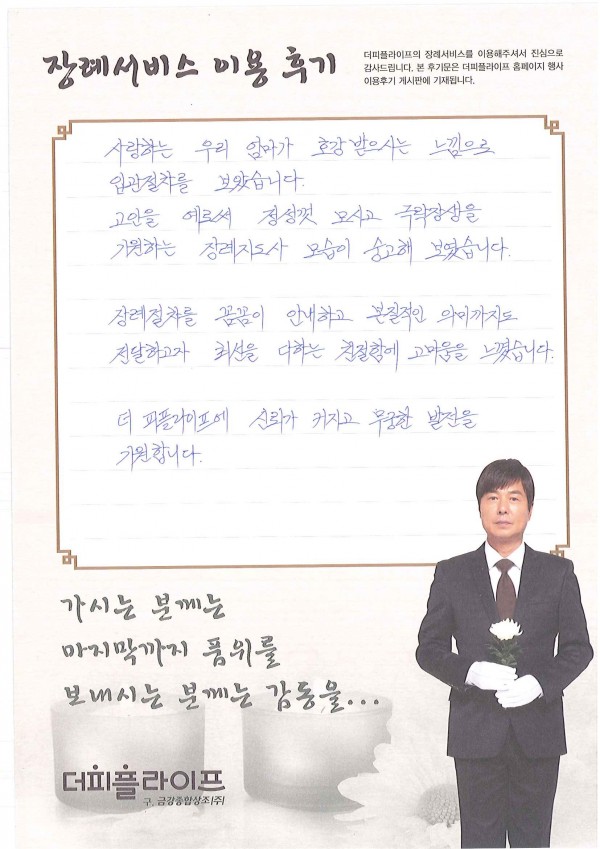 장례서비스 이용 후기
더피플라이프의 장례서비스를 이용해주셔서 진심으로
감사드립니다. 본 후기문은 더피플라이프 홈페이지 행사
이용후기 게시판에 기재됩니다.
사랑하는 우리 엄마가 호강 받으시는 느낌으로
입관절차를 보았습니다.
고인을 예로써 정성껏 모시고 극락장생을
기원하는 장례지도사 모습이 숭고해 보였습니다.
장례절차를 꼼꼼이 안내하고 본질적인 의미까지도
전달하고자 최선을 다하는 친절함에 고마움을 느꼈습니다.
더 피플라이프에 신뢰가 커지고 무궁한 발전을
기원합니다.
가시는 분께는
마지막까지 품위를
보내시는 분께는 감동을...
더피플라이프
구. 금강종합상조(주)